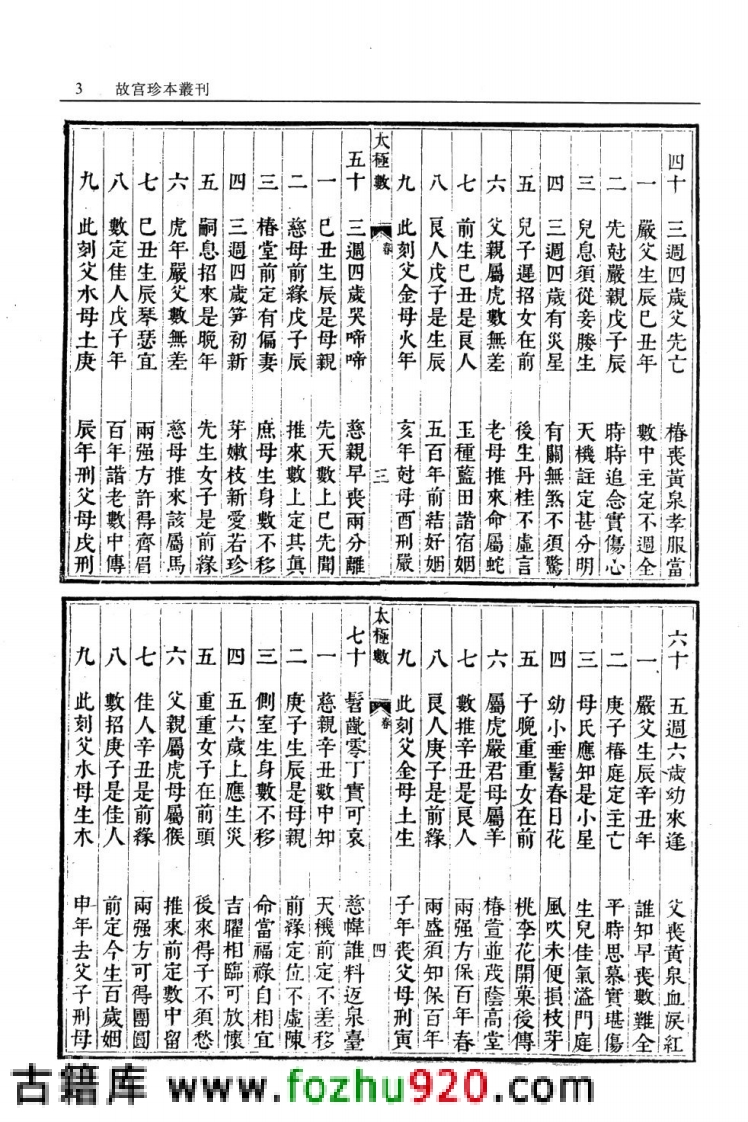 3 故宮珍本叢刊
四十 三週四歲父先亡 椿喪黃泉孝服當
一 嚴父生辰己丑年 數中主定不週全
二 先尅嚴親戊子辰 時時追念實傷心
三 兒息須從妾媵生 天機註定甚分明
四 三週四歲有災星 有關無煞不須驚
五 兒子遲招女在前 後生丹桂不虛言
六 父親屬虎數無差 老母推來命屬蛇
七 前生己丑是艮人 玉種藍田諧宿姻
八 艮人戊子是生辰 五百年前結好姻
九 此刻父金母火年 亥年尅母酉刑嚴
太極數 卷 三
五十 三週四歲哭啼啼 慈親早喪兩分離
一 己丑生辰是母親 先天數上已先聞
二 慈母前緣戊子辰 推來數上定其真
三 椿堂前定有偏妻 庶母生身數不移
四 三週四歲笋初新 芽嫩枝新愛若珍
五 嗣息招來是晚年 先生女子是前緣
六 虎年嚴父數無差 慈母推來該屬馬
七 己丑生辰琴瑟宜 兩强方許得齊眉
八 數定佳人戊子年 百年諧老數中傳
九 此刻父水母土庚 辰年刑父母戌刑
六十 五週六歲幼來逢 父喪黃泉血淚紅
一 嚴父生辰辛丑年 誰知早喪數難全
二 庚子椿庭定主亡 平時思慕實堪傷
三 母氏應知是小星 生兒佳氣溢門庭
四 幼小垂髫春日花 風吹未便損枝芽
五 子晚重重女在前 桃李花開菓後傳
六 屬虎嚴君母屬羊 椿萱並茂蔭高堂
七 數推辛丑是艮人 兩强方保百年春
八 艮人庚子是前緣 兩盛須知保百年
九 此刻父金母土生 子年喪父母刑寅
太極數 卷 四
七十 髫齔零丁實可哀 慈幃誰料返泉臺
一 慈親辛丑數中知 天機前定不差移
二 庚子生辰是母親 前緣定位不虛陳
三 側室生身數不移 命當福祿自相宜
四 五六歲上應生災 吉曜相臨可放懷
五 重重女子在前頭 後來得子不須愁
六 父親屬虎母屬猴 推來前定數中留
七 佳人辛丑是前緣 兩强方可得團圓
八 數招庚子是佳人 前定今生百歲姻
九 此刻父水母生木 申年去父子刑母
古籍库 www.fozhu920.com